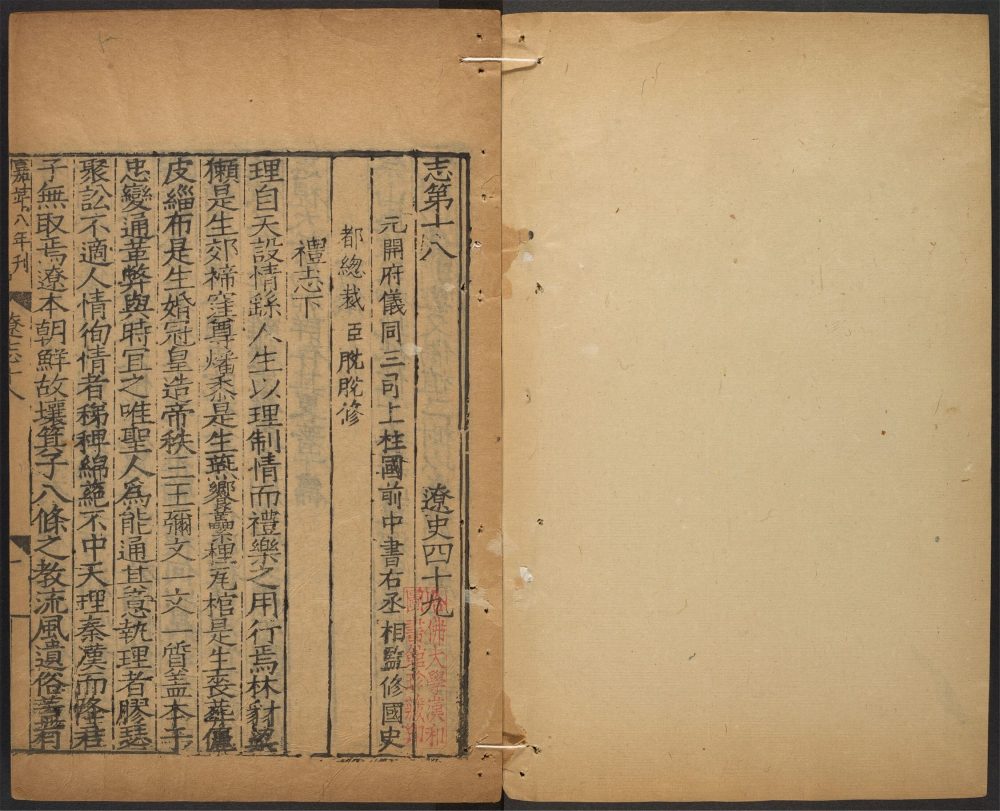 志第十八 遼史四十九
元開府儀同三司上柱國前中書右丞相監修國史
都總裁臣脫脫修
禮志下
理自天設情繇人生以理制情而禮樂之用行焉林豺梁
獺是生郊禘窪尊燔黍是生燕饗蘽梩瓦棺是生喪葬儷
皮緇布是生婚冠皇造帝秩三王彌文一文一質蓋本于
忠變通革弊與時宜之唯聖人為能通其意執理者膠瑟
聚訟不適人情徇情者稊稗綿蕝不中天理秦漢而降君
子無取焉遼本朝鮮故壤箕子八條之教流風遺俗蓋有
嘉靖八年刊
遼志十八
佛大學漢和
圖書館珍藏印